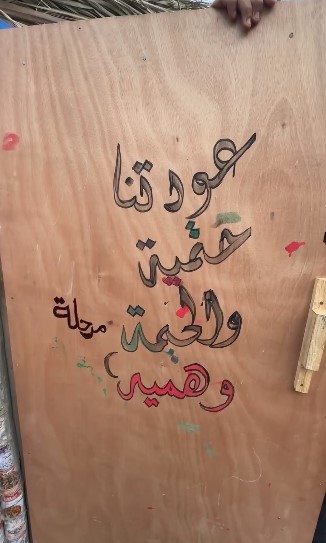 عودتنا
حتمية
والخيمة
مرحلة
وهمية